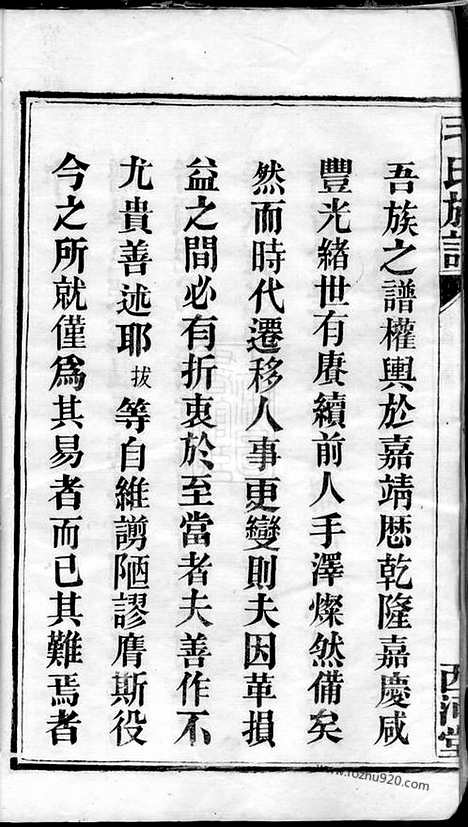 毛氏族譜
西河堂
吾族之譜權輿於嘉靖歷乾隆嘉慶咸
豐光緒世有賡續前人手澤燦然備矣
然而時代遷移人事更變則夫因革損
益之間必有折衷於至當者夫善作不
尤貴善述耶拔等自維謭陋謬膺斯役
今之所就僅爲其易者而已其難焉者
www.rozhu920.com